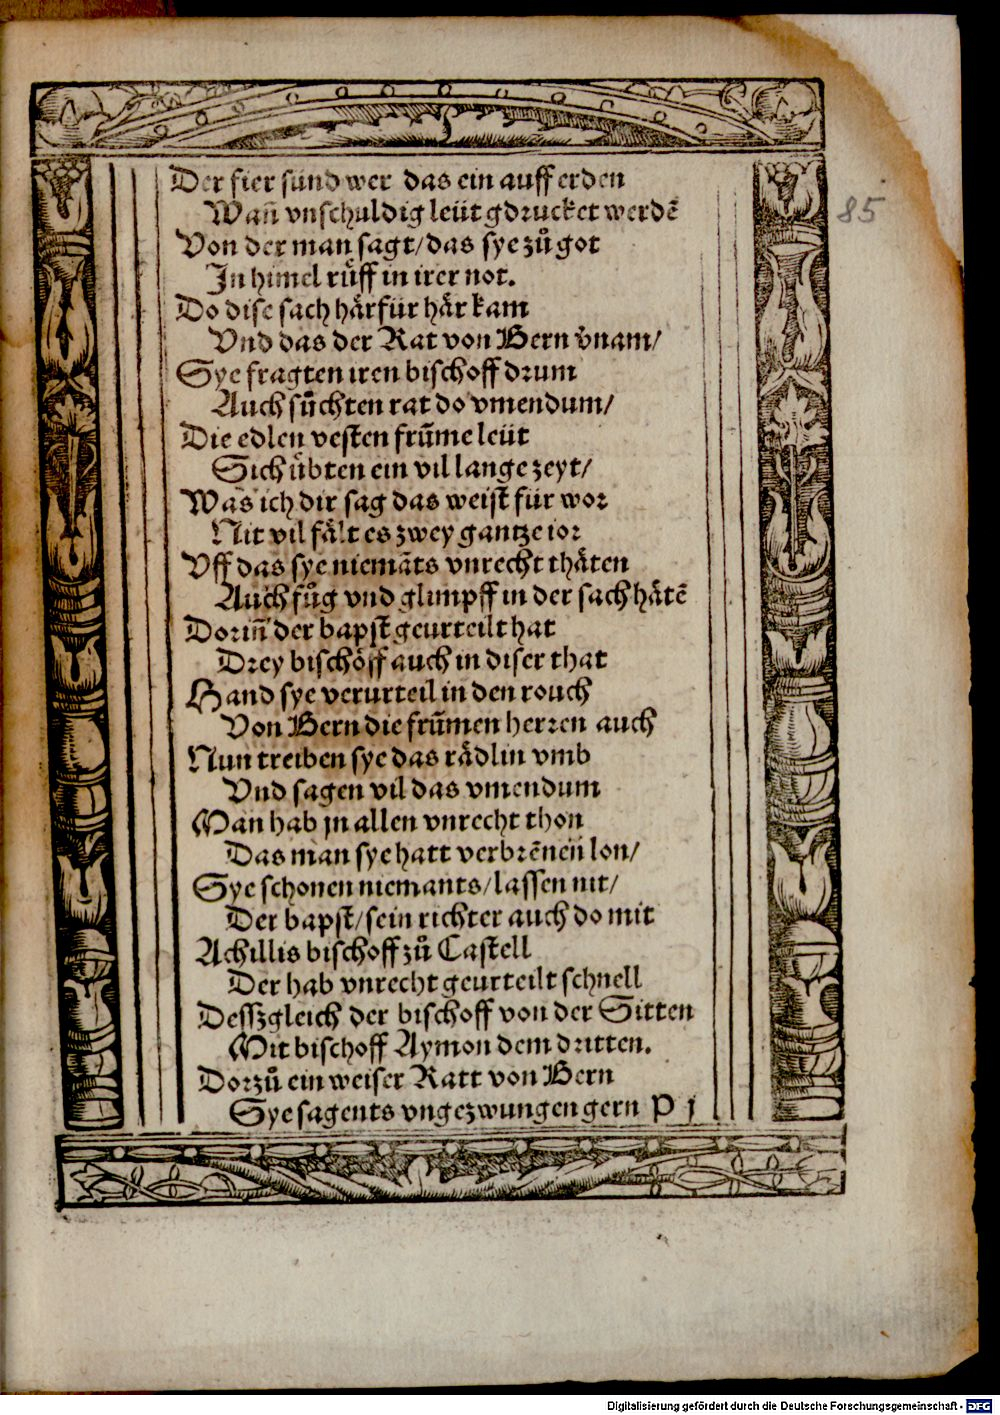 Der fier sünd wer das ein auff erden
Wañ vnschuldig leüt gdrucket werdẽ
Von der man sagt/das sye zů got
In himel rüff in irer not.
Do dise sach härfür här kam
Vnd das der Rat von Bern v̊nam/
Sye fragten iren bischoff drum
Auch sůchten rat do vmendum/
Die edlen vesten frũme leüt
Sich übten ein vil lange zeyt/
Was ich dir sag das weist für wor
Nit vil fält es zwey gantze ior
Vff das sye niemãts vnrecht thäten
Auch fůg vnd glimpff in der sach hätẽ
Dorin̄ der bapst geurteilt hat
Drey bischöff auch in diser that
Hand sye verurteil in den rouch
Von Bern die frũmen herren auch
Nun treiben sye das rädlin vmb
Vnd sagen vil das vmendum
Man hab jn allen vnrecht thon
Das man sye hatt verbrẽnen lon/
Sye schonen niemants/lassen nit/
Der bapst/sein richter auch do mit
Achillis bischoff zů Castell
Der hab vnrecht geurteilt schnell
Desszgleich der bischoff von der Sitten
Mit bischoff Aymon dem dritten.
Dorzů ein weiser Ratt von Bern
Sye sagents vngezwungen gern P j
85
Digitalisierung gefördert durch die Deutsche Forschungsgemeinschaft - DFG